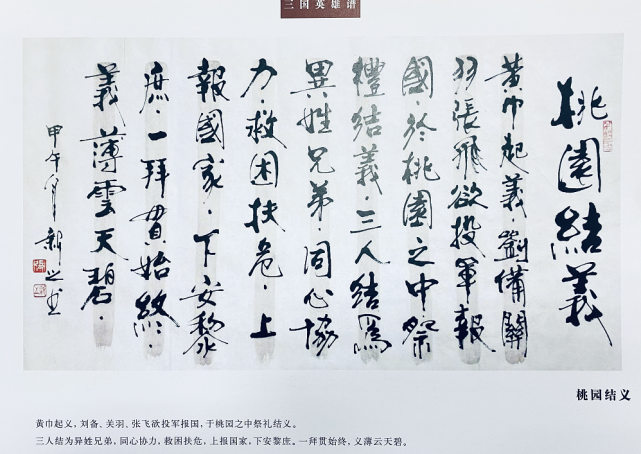 三国英雄谱
桃園結義
黄巾起義劉備關
羽張飛欲投軍報
國·於桃園之中·祭
禮結義·三人結為
異姓兄弟·同心協
力·救困扶危·上
報國家·下安黎
庶·一拜貫始終·
義薄雲天碧·
甲午年新之书
桃园结义
黄巾起义，刘备、关羽、张飞欲投军报国，于桃园之中祭礼结义。
三人结为异姓兄弟，同心协力，救困扶危，上报国家，下安黎庶。一拜贯始终，义薄云天碧。